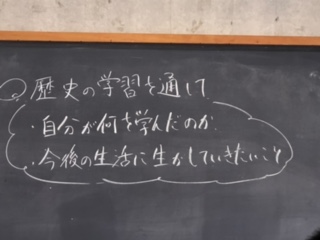 歴史の学習を通して
・自分が何を学んだのか
・今後の生活に生かしていきたいこと